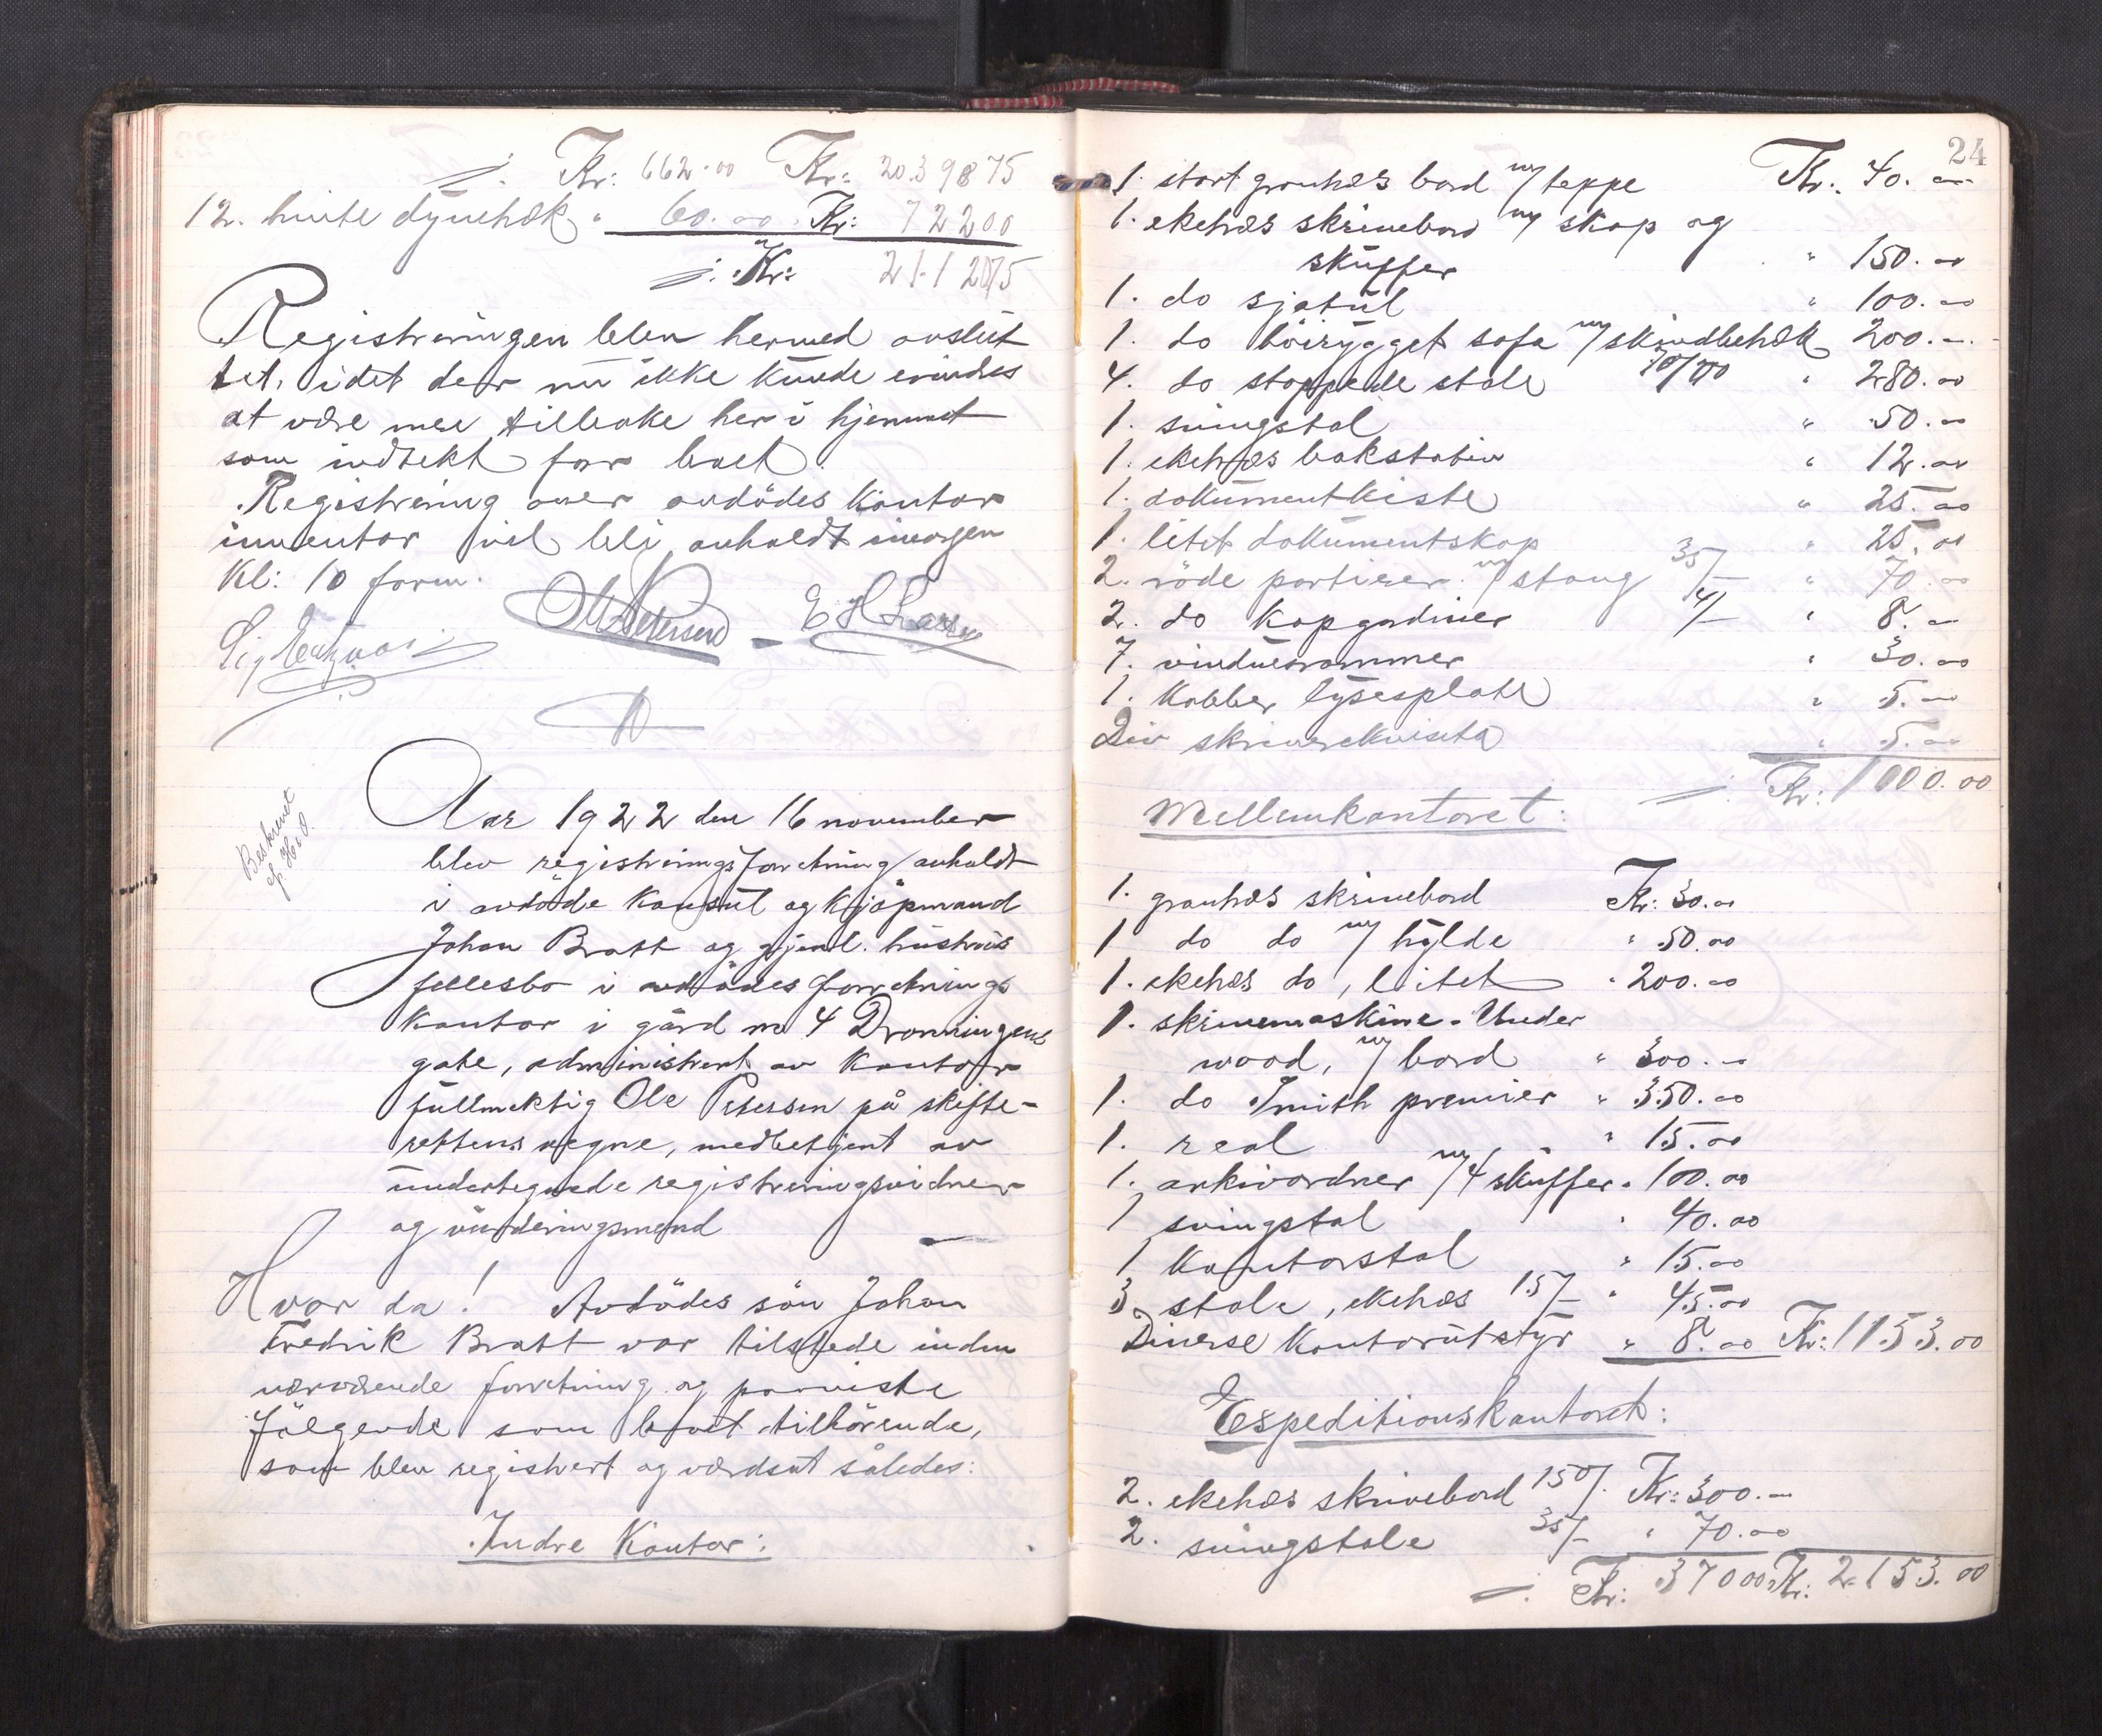 Kr: 662.00 Kr: 20398 75
12. hvite dynetræk " 60.00 Kr: 722 00
Kr: 21120 75
Registreringen blev hermed avslut
tet, idet der nu ikke kunde erindres
at være mere tilbake her i hjemmet
som indtekt for boet.
Registrering over avdödes kontor
inventar vil bli avholdt imorgen
Kl: 10 form.
Ole Petersen E H Larsen
Aar 1922 den 16 november
Beskrevet
blev registreringsforretning avholdt
i avdöde Konsul og Kjöpmand
Johan Bratt og gjenl. hustrus
fellesbo i avdödes forretnings
kontor i gård no 4 Dronningens
gate, administrert av Kontor
fullmektig Ole Petersen på skifte-
rettens vegne, medbetjent av
undertegnede registreringsvidner
og vurderingsmend
Hvor da! Avdödes sön Johan
Fredrik Bratt var tilstede under
nærværende forretning og paaviste
fölgende som boet tilhörende,
som blev registrert og verdsat således:
Indre Kontor:
24
1. stort granhæs bord m/ teppe Kr: 40.00
1. ekehæs skrivebord m/ skap og
skuffer " 150.00
1. do sjatul " 100.00
1. do höirygget sofa m/ skindbetræk 200.00
4. do stoppede stole 70/00 " 280.00
1. svingstol " 50.00
1. ekehæs bokstativ " 12.00
1. dokumentkiste " 25.00
1. litet dokumentskap " 25.00
2. röde portierer m/ stang 35/- " 70.00
2. do kapgardiner 4/- " 8.00
7. vinduesrammer " 30.00
1. Kobber lysesplate " 5.00
Div skriverekvisita " 5.00
Kr: 1000.00
Mellemkontoret:
1. granhæs skrivebord Kr: 30.00
1 do do m/ hylde " 50.00
1. ekehæs do, litet " 200.00
1. skrivemaskine. Under
wood, m/ bord " 300.00
1. do Smith premier " 350.00
1. reol " 15.00
1. arkivordner m/ 4 skuffer " 100.00
1 svingstol " 40.00
1 Kontorstol " 15.00
3 stole, ekehæs 15/- " 45.00
Diverse Kontorutstyr " 8.00 Kr: 1153.00
Expeditionskontoret:
2. ekehæs skrivebord 150/- Kr: 300.00
2. svingstole 35/- " 70.00
Kr: 370 00 Kr: 2153.00